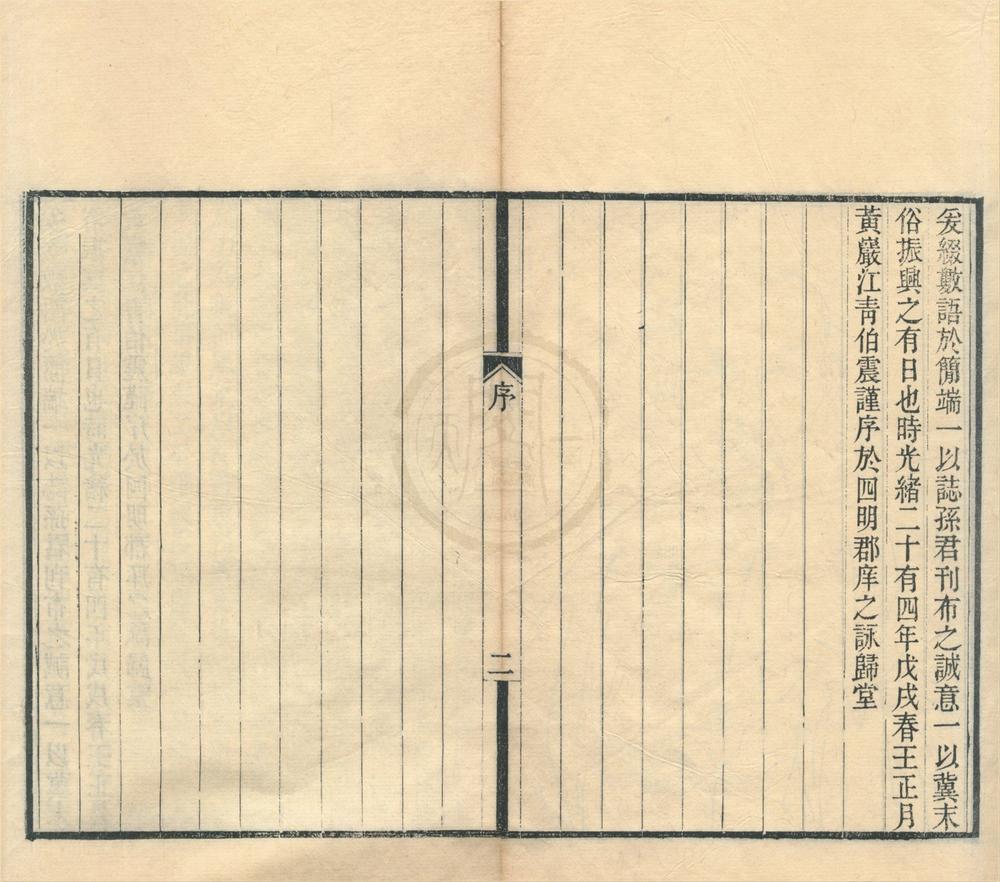 爰綴數語於簡端一以誌孫君刊布之誠意一以冀末
俗振興之有日也時光緒二十有四年戊戌春王正月
黃巖江靑伯震謹序於四明郡庠之詠歸堂
序
二